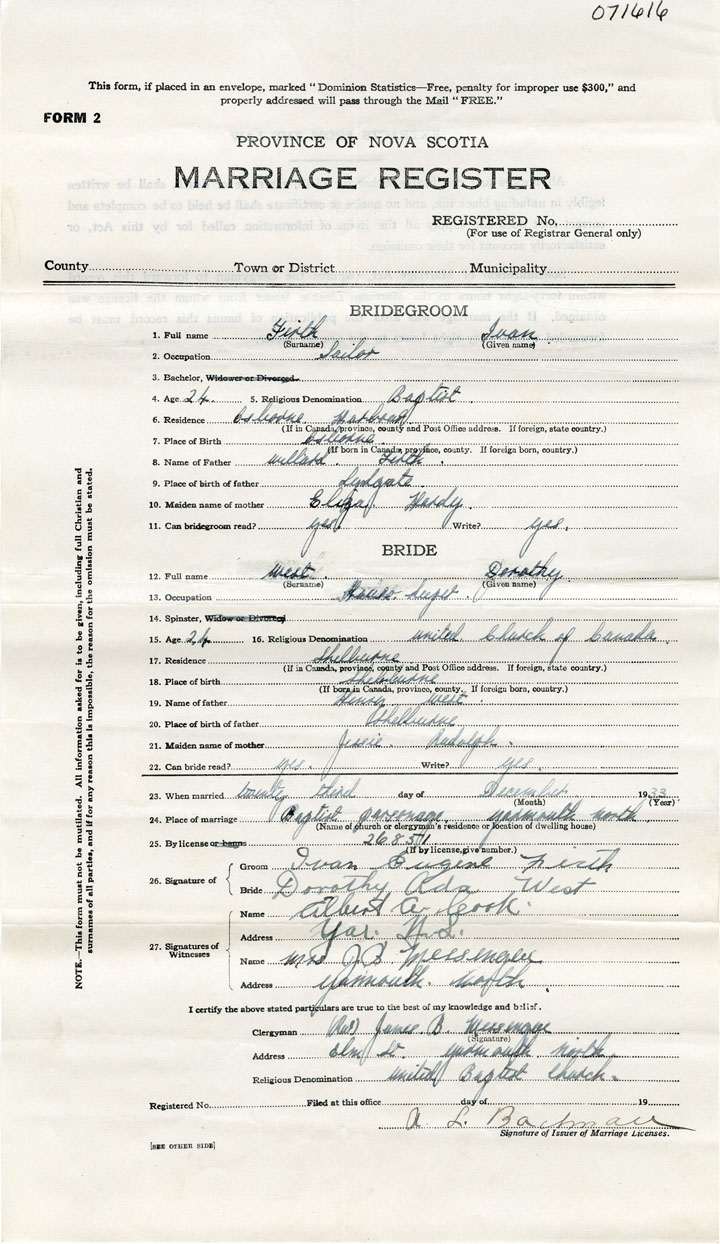 071616
This form, if placed in an envelope, marked "Dominion Statistics—Free, penalty for improper use $300," and
properly addressed will pass through the Mail "FREE."
FORM 2
PROVINCE OF NOVA SCOTIA
MARRIAGE REGISTER
REGISTERED No.
(For use of Registrar General only)
County Town or District Municipality
BRIDEGROOM
1. Full name Firth Ivan
(Surname) (Given name)
2. Occupation Sailor
3. Bachelor, Widower or Divorced.
4. Age 24. 5. Religious Denomination Baptist.
6. Residence Osborne Harbour
(If in Canada, province, county and Post Office address. If foreign, state country.)
7. Place of Birth Osborne
(If born in Canada, province, county. If foreign born, country.)
8. Name of Father Willard Firth.
9. Place of birth of father Lydgate.
10. Maiden name of mother Eliza Hardy.
11. Can bridegroom read? yes. Write? yes.
BRIDE
12. Full name West. Dorothy
(Surname) (Given name)
13. Occupation House
14. Spinster, Widow or Divorced
15. Age 24 16. Religious Denomination United Church of Canada.
17. Residence Shelburne
(If in Canada, province, county and Post Office address. If foreign, state country.)
18. Place of birth Shelburne
(If born in Canada, province, county. If foreign born, country.)
19. Name of father Henry West.
20. Place of birth of father Shelburne
21. Maiden name of mother Jessie. Rudolph.
22. Can bride read? yes. Write? yes.
23. When married twenty third day of December 1933
(Month) (Year)
24. Place of marriage Baptist parsonage Yarmouth north
(Name of church or clergyman's residence or location of dwelling house)
25. By license or banns 268501
(If by license, give number.)
26. Signature of
Groom Ivan Eugene Firth
Bride Dorothy Ada West
27. Signatures of Witnesses
Name Albert A. Cook.
Address Yar. N.S.
Name Mrs J B Messenger
Address Yarmouth. North.
I certify the above stated particulars are true to the best of my knowledge and belief.
Clergyman (Rev) James. B. Messenger
(Signature)
Address Elm St. Yarmouth north.
Religious Denomination United Baptist Church.
Registered No. Filed at this office day of 19
L. Bachman
Signature of Issuer of Marriage Licenses.
[SEE OTHER SIDE]
NOTE.—This form must not be mutilated. All information asked for is to be given, including full Christian and
surnames of all parties, and if for any reason this is impossible, the reason for the omission must be stated.